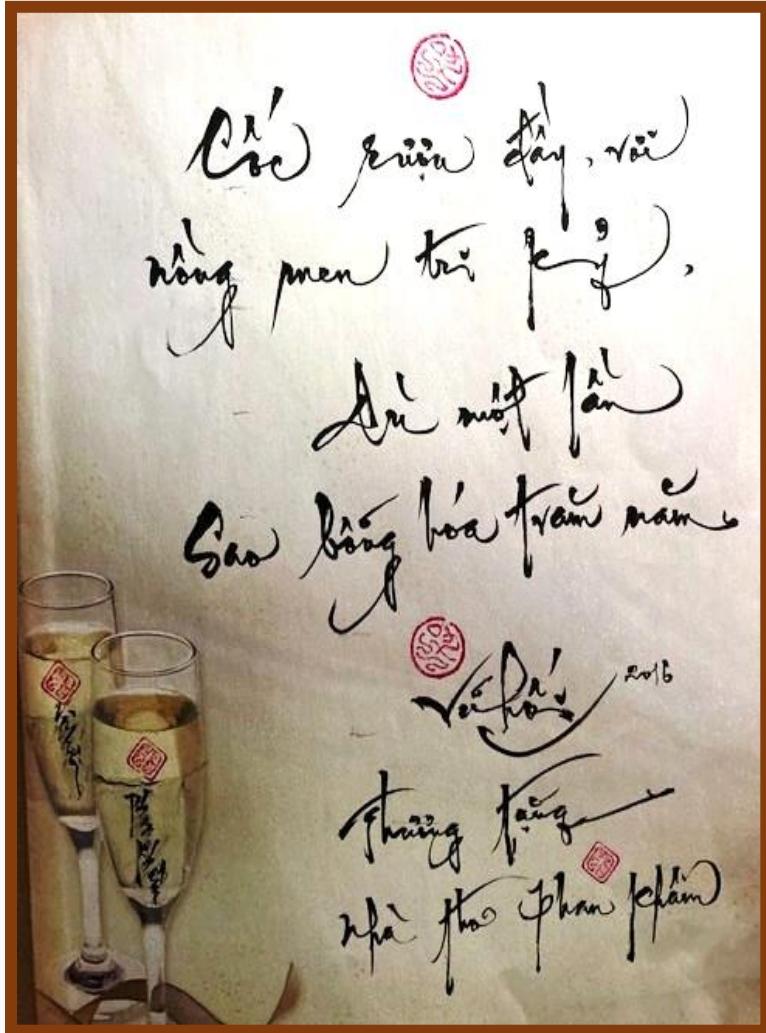 Cốc rượu đầy, với
nồng men tri kỷ,
Dù một lần
Sao bỗng hóa trăm năm.
Vũ Hối 2016
Thương tặng
nhà thơ Phan Khâm